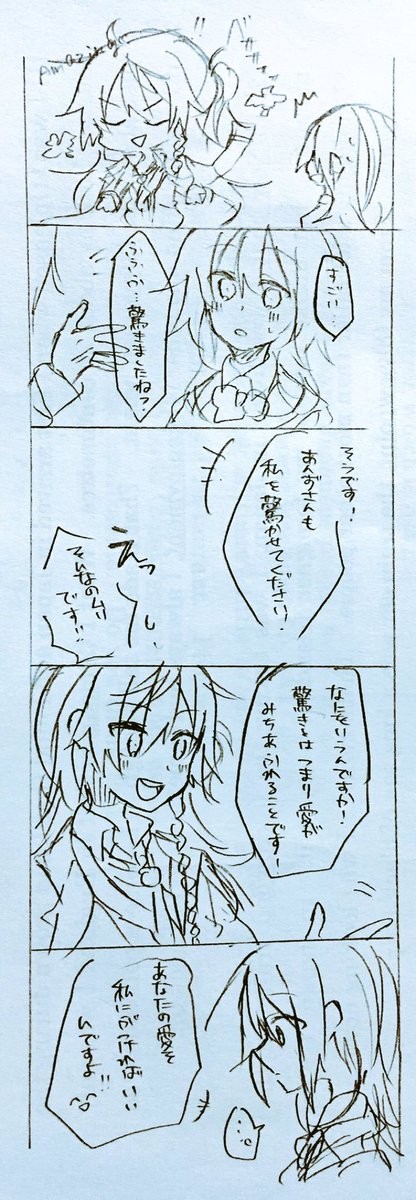 Amazing
すごい…
ふふふ…
驚きましたね?
そうです!
あんずさんも
私を驚かせてください!
えっ
そんなのムリ
です!!
なにをいうんですか!
驚きとはつまり愛が
みちあふれることです!
あなたの愛を
私にぶつければいい
んですよ!!
…。